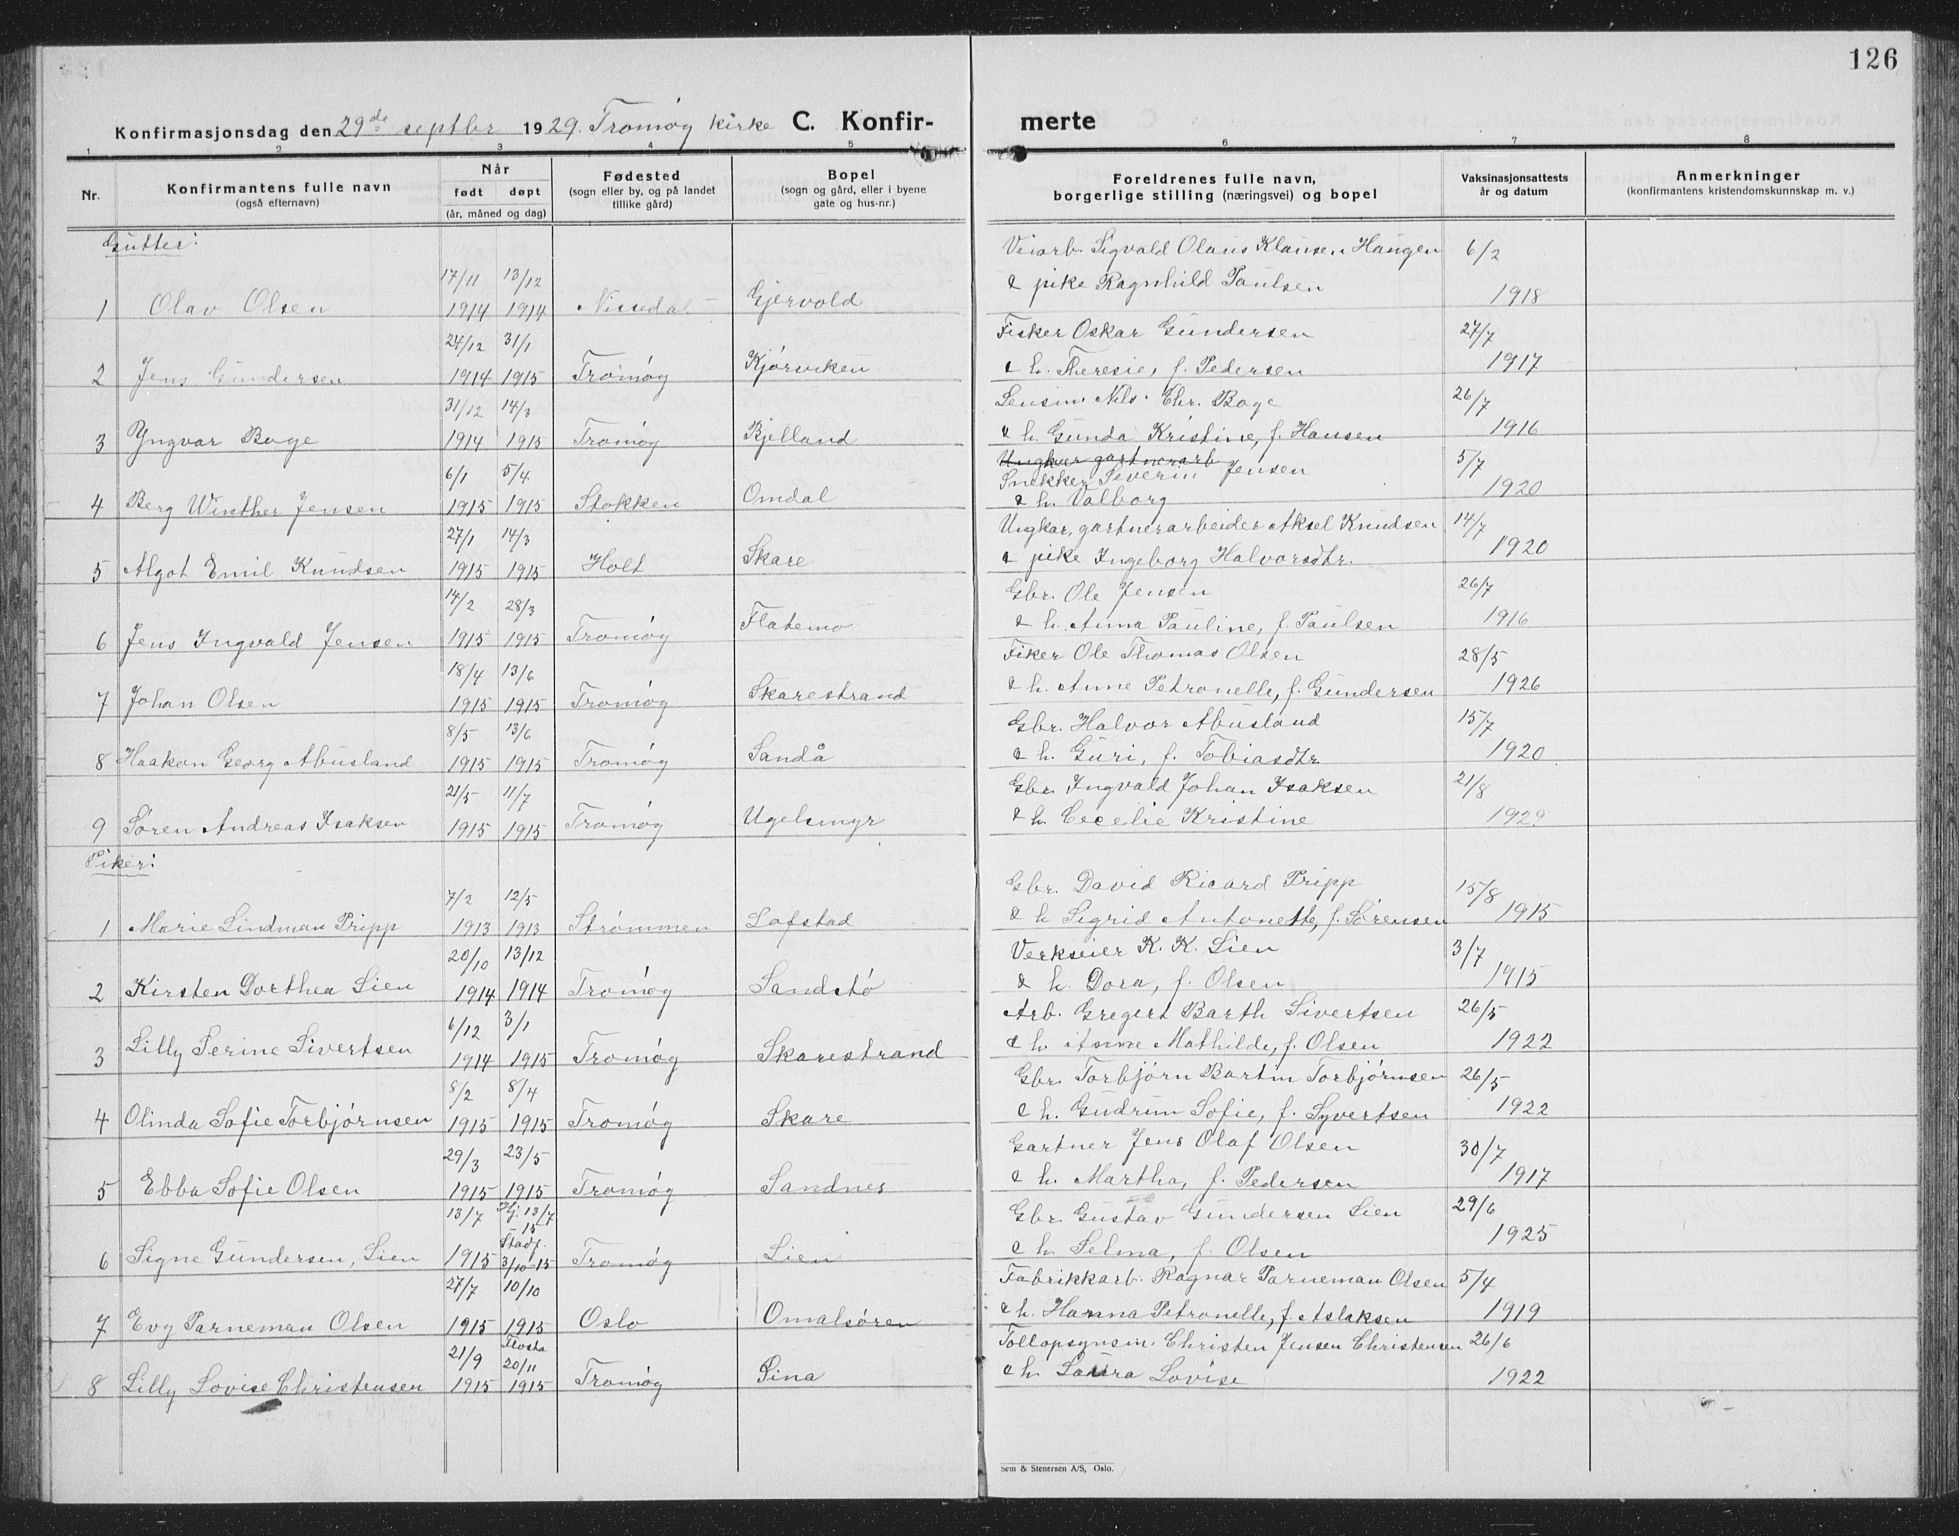 126
Konfirmasjonsdag den 29de septbr 1929. Tromøy kirke C. Konfir- merte
1 2 3 4 5 6 7 8
Nr. Konfirmantens fulle navn (også efternavn) Når født døpt (år, måned og dag) Fødested (sogn eller by, og på landet tillike gård) Bopel (sogn og gård, eller i byene gate og hus-nr.) Foreldrenes fulle navn, borgerlige stilling (næringsvei) og bopel Vaksinasjonsattests år og datum Anmerkninger (konfirmantens kristendomskunnskap m. v.)
Gutter:
17/11 13/12 Veiarb. Sigvald Olaus Klausen Haugen 6/2
1 Olav Olsen 1914 1914 Nissedal Gjervold & pike Ragnhild Paulsen 1918
24/12 31/1 Fisker Oskar Gundersen 27/7
2 Jens Gundersen 1914 1915 Tromøy Kjørviken & h. Theresie, f. Pedersen 1917
31/12 14/3 Lensm. Nils Chr. Boge 26/7
3 Yngvar Boge 1914 1915 Tromøy Bjelland & h. Gunda Kristine, f. Hansen 1916
Ungkar gartnerarb
6/1 5/4 Snekker Severin Jensen 5/7
4 Berg Winther Jensen 1915 1915 Stokken Omdal & h. Valborg 1920
27/1 14/3 Ungkar, gartnerarbeider Aksel Knudsen 14/7
5 Algot Emil Knudsen 1915 1915 Holt Skare & pike Ingeborg Halvorsdtr. 1920
14/2 28/3 Gbr. Ole Jensen 26/7
6 Jens Ingvald Jensen 1915 1915 Tromøy Flatemo & h. Anna Pauline, f. Paulsen 1916
18/4 13/6 Fiker Ole Thomas Olsen 28/5
7 Johan Olsen 1915 1915 Tromøy Skarestrand & h. Anne Petronelle, f. Gundersen 1926
8/5 13/6 Gbr. Halvor Abusland 15/7
8 Haakon Georg Abusland 1915 1915 Tromøy Sandå & h. Guri, f. Tobiasdtr. 1920
21/5 11/7 Gbr. Ingvald Johan Isaksen 21/8
9 Søren Andreas Isaksen 1915 1915 Tromøy Ugelsmyr & h. Cecelie Kristine 1929
Piker:
7/2 12/5 Gbr. David Ricard Pripp 15/8
1 Marie Lindman Pripp 1913 1913 Strømmen Lofstad & h. Sigrid Antonette, f. Sørensen 1915
20/10 13/12 Verkseier K. K. Lien 3/7
2 Kirsten Dorthea Lien 1914 1914 Tromøy Sandstø & h. Dora, f. Olsen 1915
6/12 3/1 Arb. Gregert Barth Sivertsen 26/5
3 Lilly Serine Sivertsen 1914 1915 Tromøy Skarestrand & h. Anne Mathilde, f. Olsen 1922
8/2 8/4 Gbr. Torbjørn Bartin Torbjørnsen 26/5
4 Olinda Sofie Torbjørnsen 1915 1915 Tromøy Skare & h. Gudrun Sofie, f. Syvertsen 1922
29/3 23/5 Gartner Jens Olaf Olsen 30/7
5 Ebba Sofie Olsen 1915 1915 Tromøy Sandnes & h. Martha, f. Pedersen 1917
13/7 Hj. 13/7 15 Gbr. Gustav Gundersen Lien 29/6
6 Signe Gundersen, Lien 1915 Stadf. 3/10-15 Tromøy Lien & h. Selma, f. Olsen 1925
27/7 10/10 Fabrikkarb. Ragnar Parneman Olsen 5/4
7 Evy Parneman Olsen 1915 1915 Oslo Omalsøren & h. Hanna Petronelle, f. Aslaksen 1919
21/9 Flosta 20/11 Tollopsynsm. Christen Jensen Christensen 26/6
8 Lilly Lovise Christensen 1915 1915 Tromøy Pina & h. Laura Lovise 1922
Sem & Stenersen A/S, Oslo.